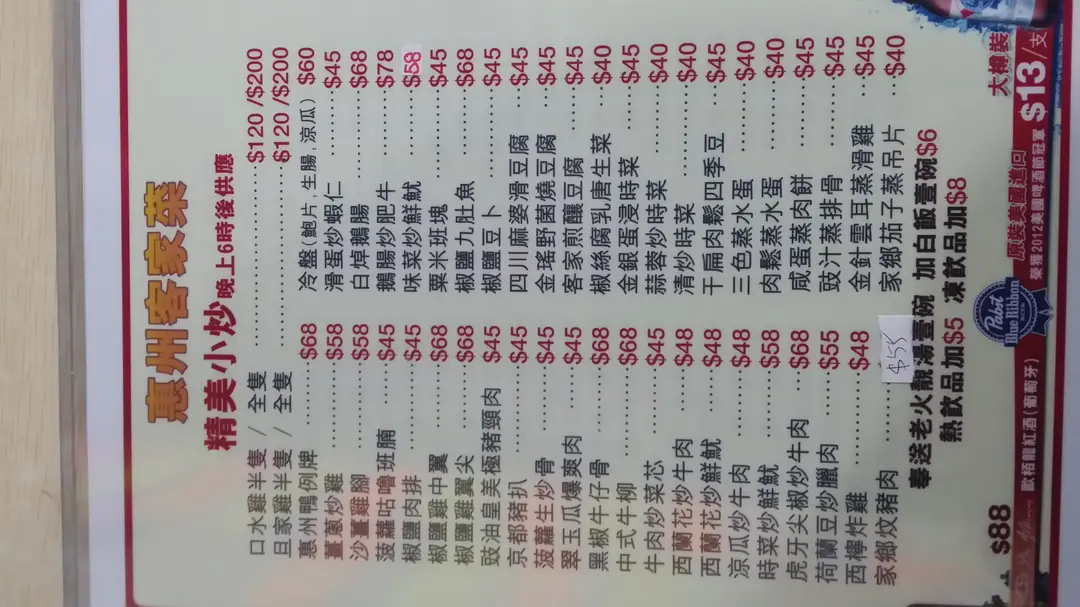 惠州客家菜
精美小炒 晚上6時後供應
口水雞半隻 / 全隻 $120 /$200
旦家雞半隻 / 全隻 $120 /$200
惠州鴨例牌 $68
薑蔥炒雞 $58
沙薑雞腳 $58
菠蘿咕嚕班腩 $45
椒鹽肉排 $45
椒鹽雞中翼 $68
椒鹽雞翼尖 $68
豉油皇美極豬頸肉 $45
京都豬扒 $45
菠蘿生炒骨 $45
翠玉瓜爆爽肉 $45
黑椒牛仔骨 $68
中式牛柳 $68
牛肉炒菜芯 $45
西蘭花炒牛肉 $48
西蘭花炒鮮魷 $48
涼瓜炒牛肉 $48
時菜炒鮮魷 $58
虎牙尖椒炒牛肉 $68
荷蘭豆炒臘肉 $55
西檸炸雞 $48
家鄉炆豬肉 $55
冷盤(鮑片,生腸,涼瓜) $60
滑蛋炒蝦仁 $45
白焯鵝腸 $68
鵝腸炒肥牛 $78
味菜炒鮮魷 $58
粟米班塊 $45
椒鹽九肚魚 $68
椒鹽豆卜 $45
四川麻婆滑豆腐 $45
金瑤野菌燒豆腐 $45
客家煎釀豆腐 $45
椒絲腐乳唐生菜 $40
金銀蛋浸時菜 $45
蒜蓉炒時菜 $40
清炒時菜 $40
干扁肉鬆四季豆 $45
三色蒸水蛋 $40
肉鬆蒸水蛋 $40
咸蛋蒸肉餅 $45
豉汁蒸排骨 $45
金針雲耳蒸滑雞 $45
家鄉茄子蒸吊片 $40
奉送老火靚湯壹碗 加白飯壹碗$6
熱飲品加$5 凍飲品加$8
$88
歐栢龍紅酒(葡萄牙)
Pabst
Blue Ribbon
原裝美國進口
榮獲2012美國啤酒節冠軍
大樽裝
$13/支